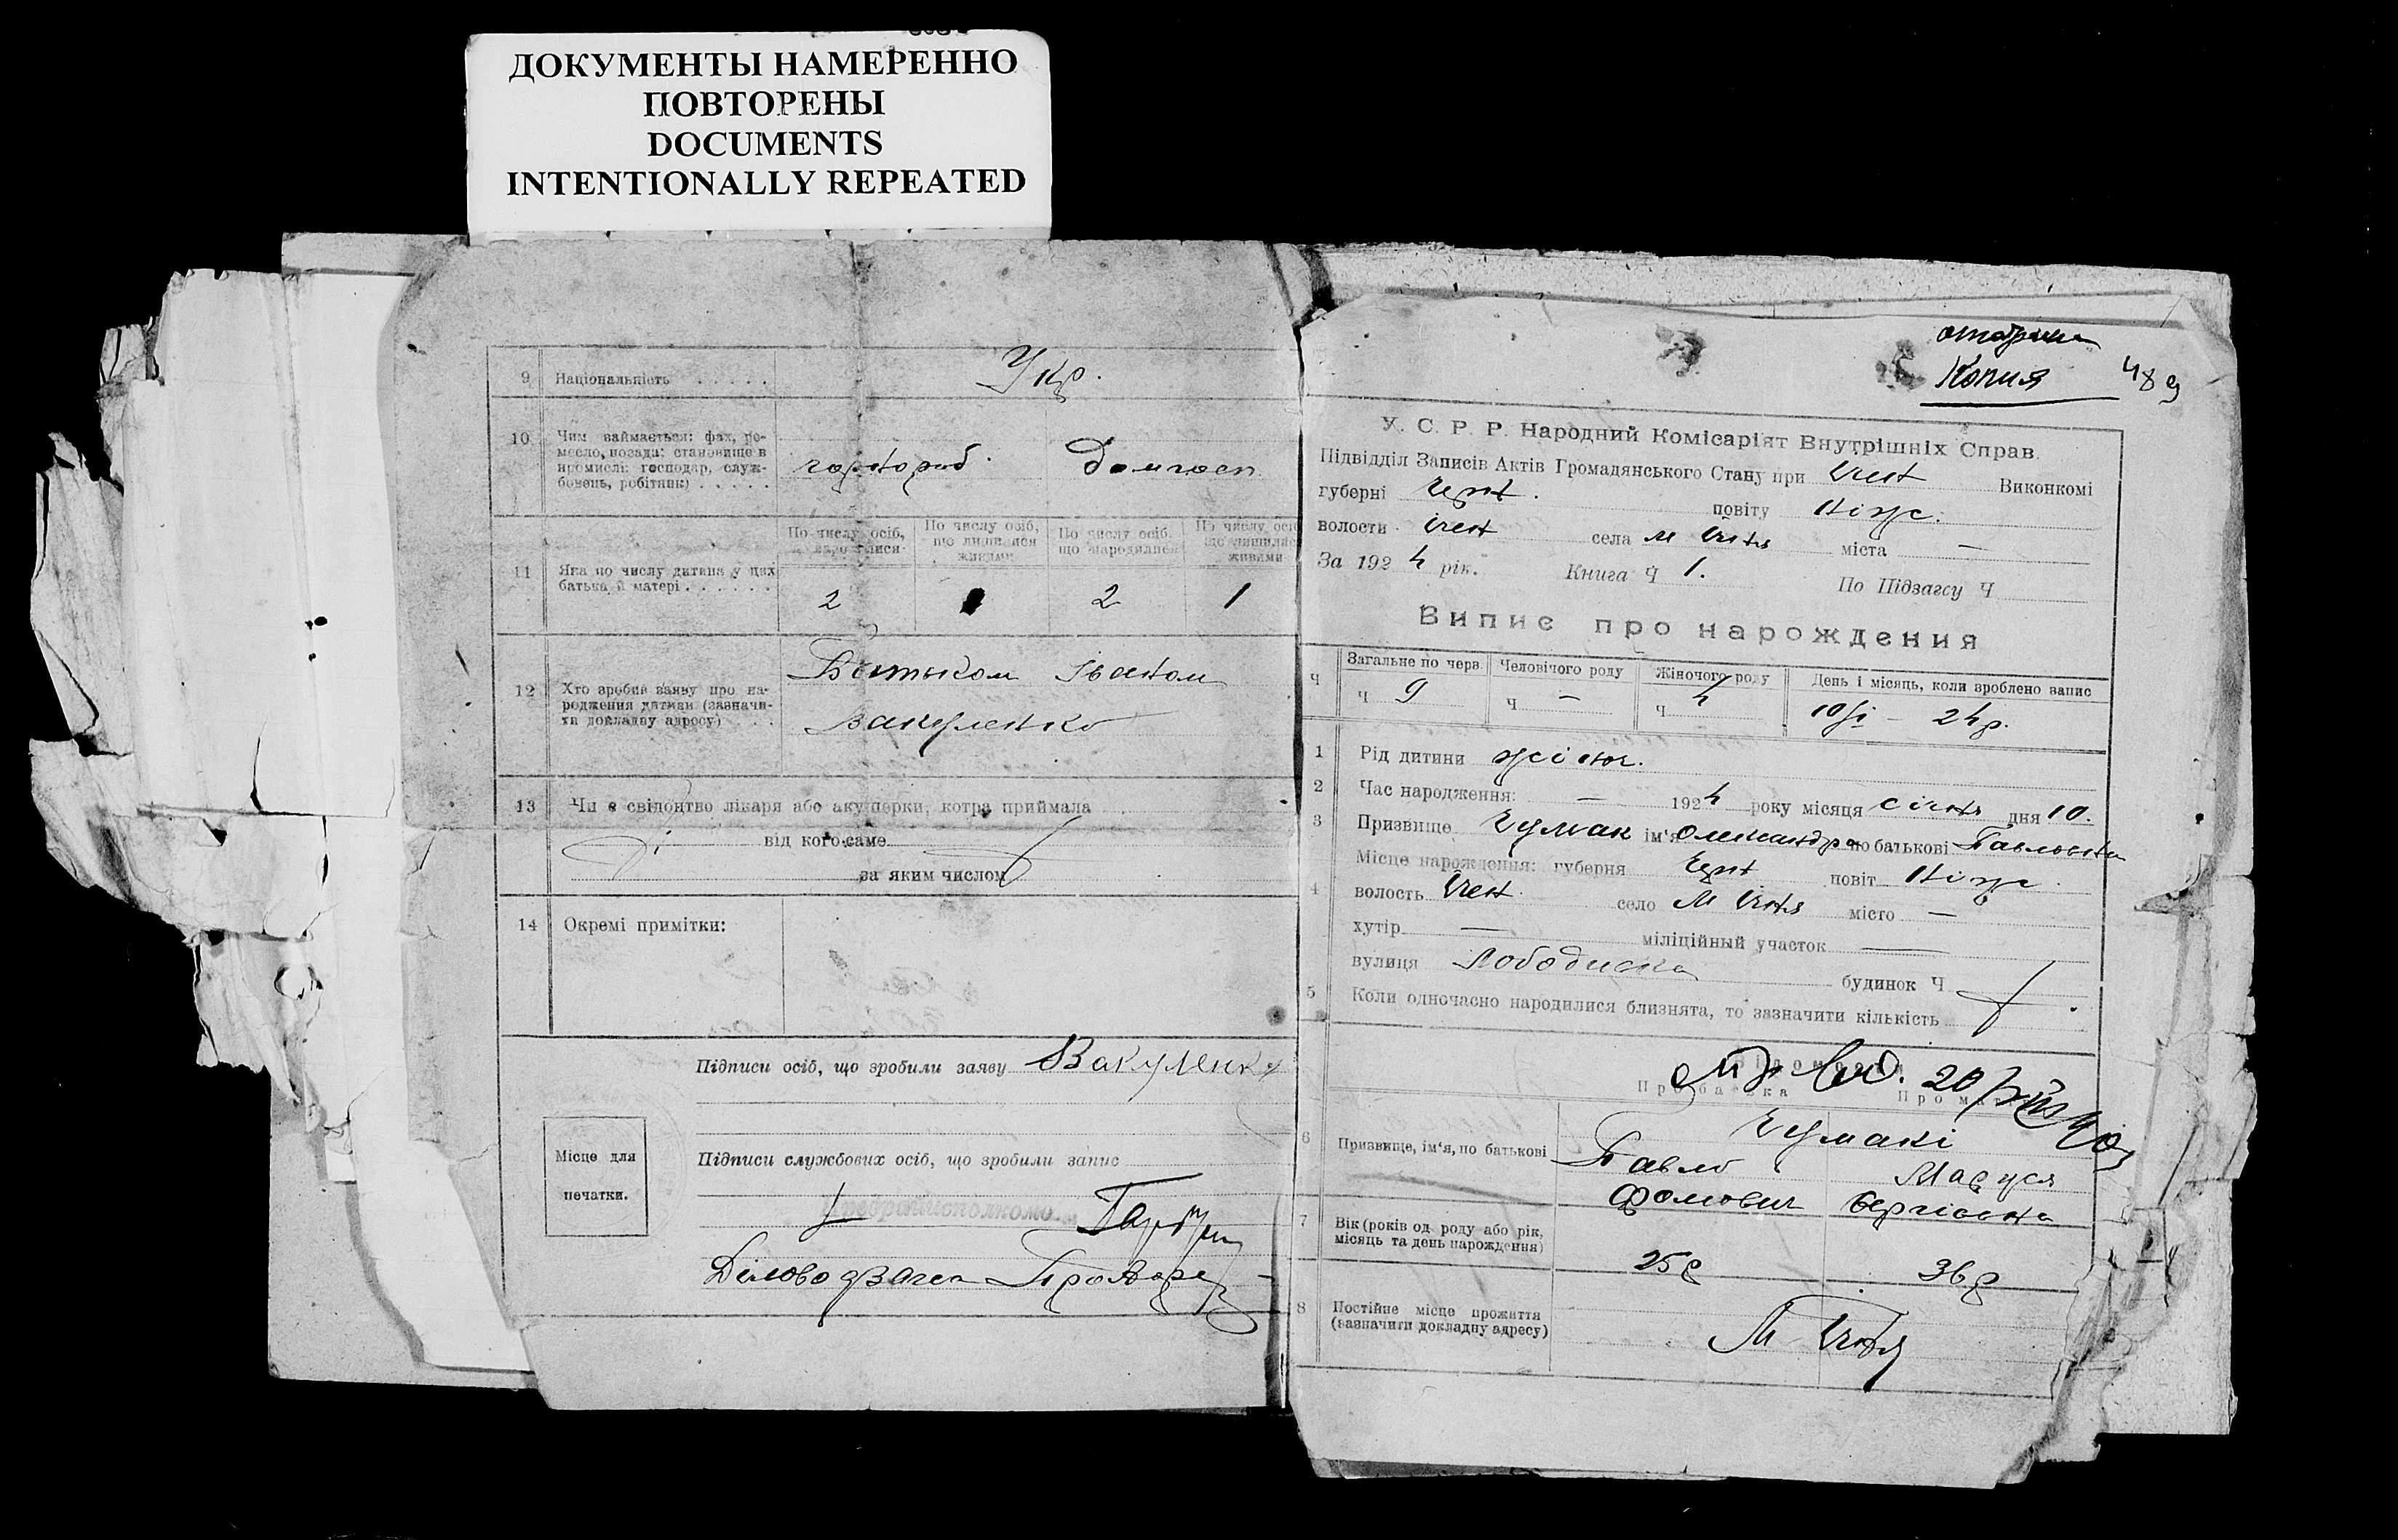 ДОКУМЕНТЫ НАМЕРЕННО
ПОВТОРЕНЫ
DOCUMENTS
INTENTIONALLY REPEATED
9 Національність Укр.
10 Чим займається: фах, ре-
месло, посада: становище в
промислі: господар, служ-
бовець, робітник) чорнороб. Домгосп
По числу осіб, що народилися По числу осіб, що лишилися живими По числу осіб, що народилися По числу осіб що лишилися живими
11 Яка по числу дитина у цих
батька й матері 2 2 1
12 Хто зробив заяву про на-
родження дитини (зазначи-
ти докладну адресу) Батьком Іваном
Вакуленко
13 Чи є свідоцтво лікаря або акушерки, котра приймала
від кого саме
за яким числом
14 Окремі примітки:
Підписи осіб, що зробили заяву Вакуленко
Місце для
печатки.
Підписи службових осіб, що зробили запис
Копия 489
У. С. Р. Р. Народний Комісаріят Внутрішніх Справ.
Підвідділ Записів Актів Громадянського Стану при Ічен Виконкомі
губерні Черн. повіту Ніж.
волости Ічен села м Ічня міста —
За 1924 рік. Книга Ч 1. По Підзагсу Ч
Випис про нарождения
Ч Загальне по черв. Человічого роду Жіночого роду День і місяць, коли зроблено запис
Ч 9 Ч — Ч 4 10/I – 24 р.
1 Рід дитини жіноч.
2 Час народження: — 1924 року місяця січня дня 10.
3 Призвище Чумак ім'я Олександра по батькові Павловна
4 Місце народження: губерня Черн повіт Ніж.
волость Ічен. село М Ічня місто —
хутір — міліційный участок —
вулиця будинок Ч
5 Коли одночасно народилися близнята, то зазначити кількість
Відомости
Про батька Про матір
6 Призвище, ім'я, по батькові Чумакі
Павло Маруся
Фомович Сергієвна
7 Вік (років од роду або рік,
місяць та день нарождення) 25 р 36 р
8 Постійне місце прожиття
(зазначити докладну адресу) М Ічня